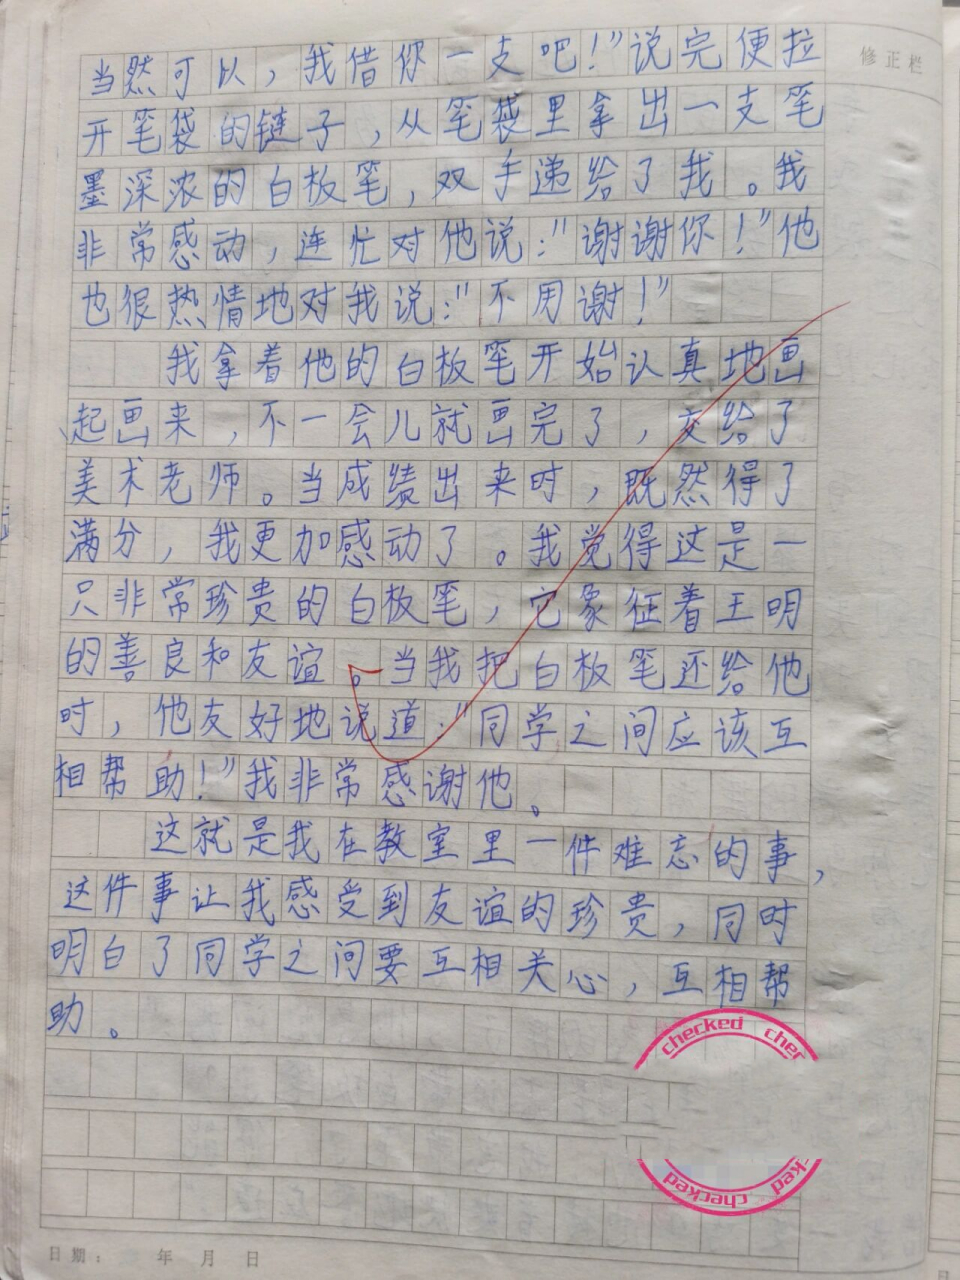 修正栏
当然可以，我借你一支吧！”说完便拉
开笔袋的链子，从笔袋里拿出一支笔
墨深浓的白板笔，双手递给了我。我
非常感动，连忙对他说：“谢谢你！”他
也很热情地对我说：“不用谢！”
我拿着他的白板笔开始认真地画
起画来，不一会儿就画完了，交给了
美术老师。当成绩出来时，既然得了
满分，我更加感动了。我觉得这是一
只非常珍贵的白板笔，它象征着王明
的善良和友谊。当我把白板笔还给他
时，他友好地说道：“同学之间应该互
相帮助！”我非常感谢他。
这就是我在教室里一件难忘的事，
这件事让我感受到友谊的珍贵，同时
明白了同学之间要互相关心，互相帮
助。
checked checked
checked
日期： 年 月 日